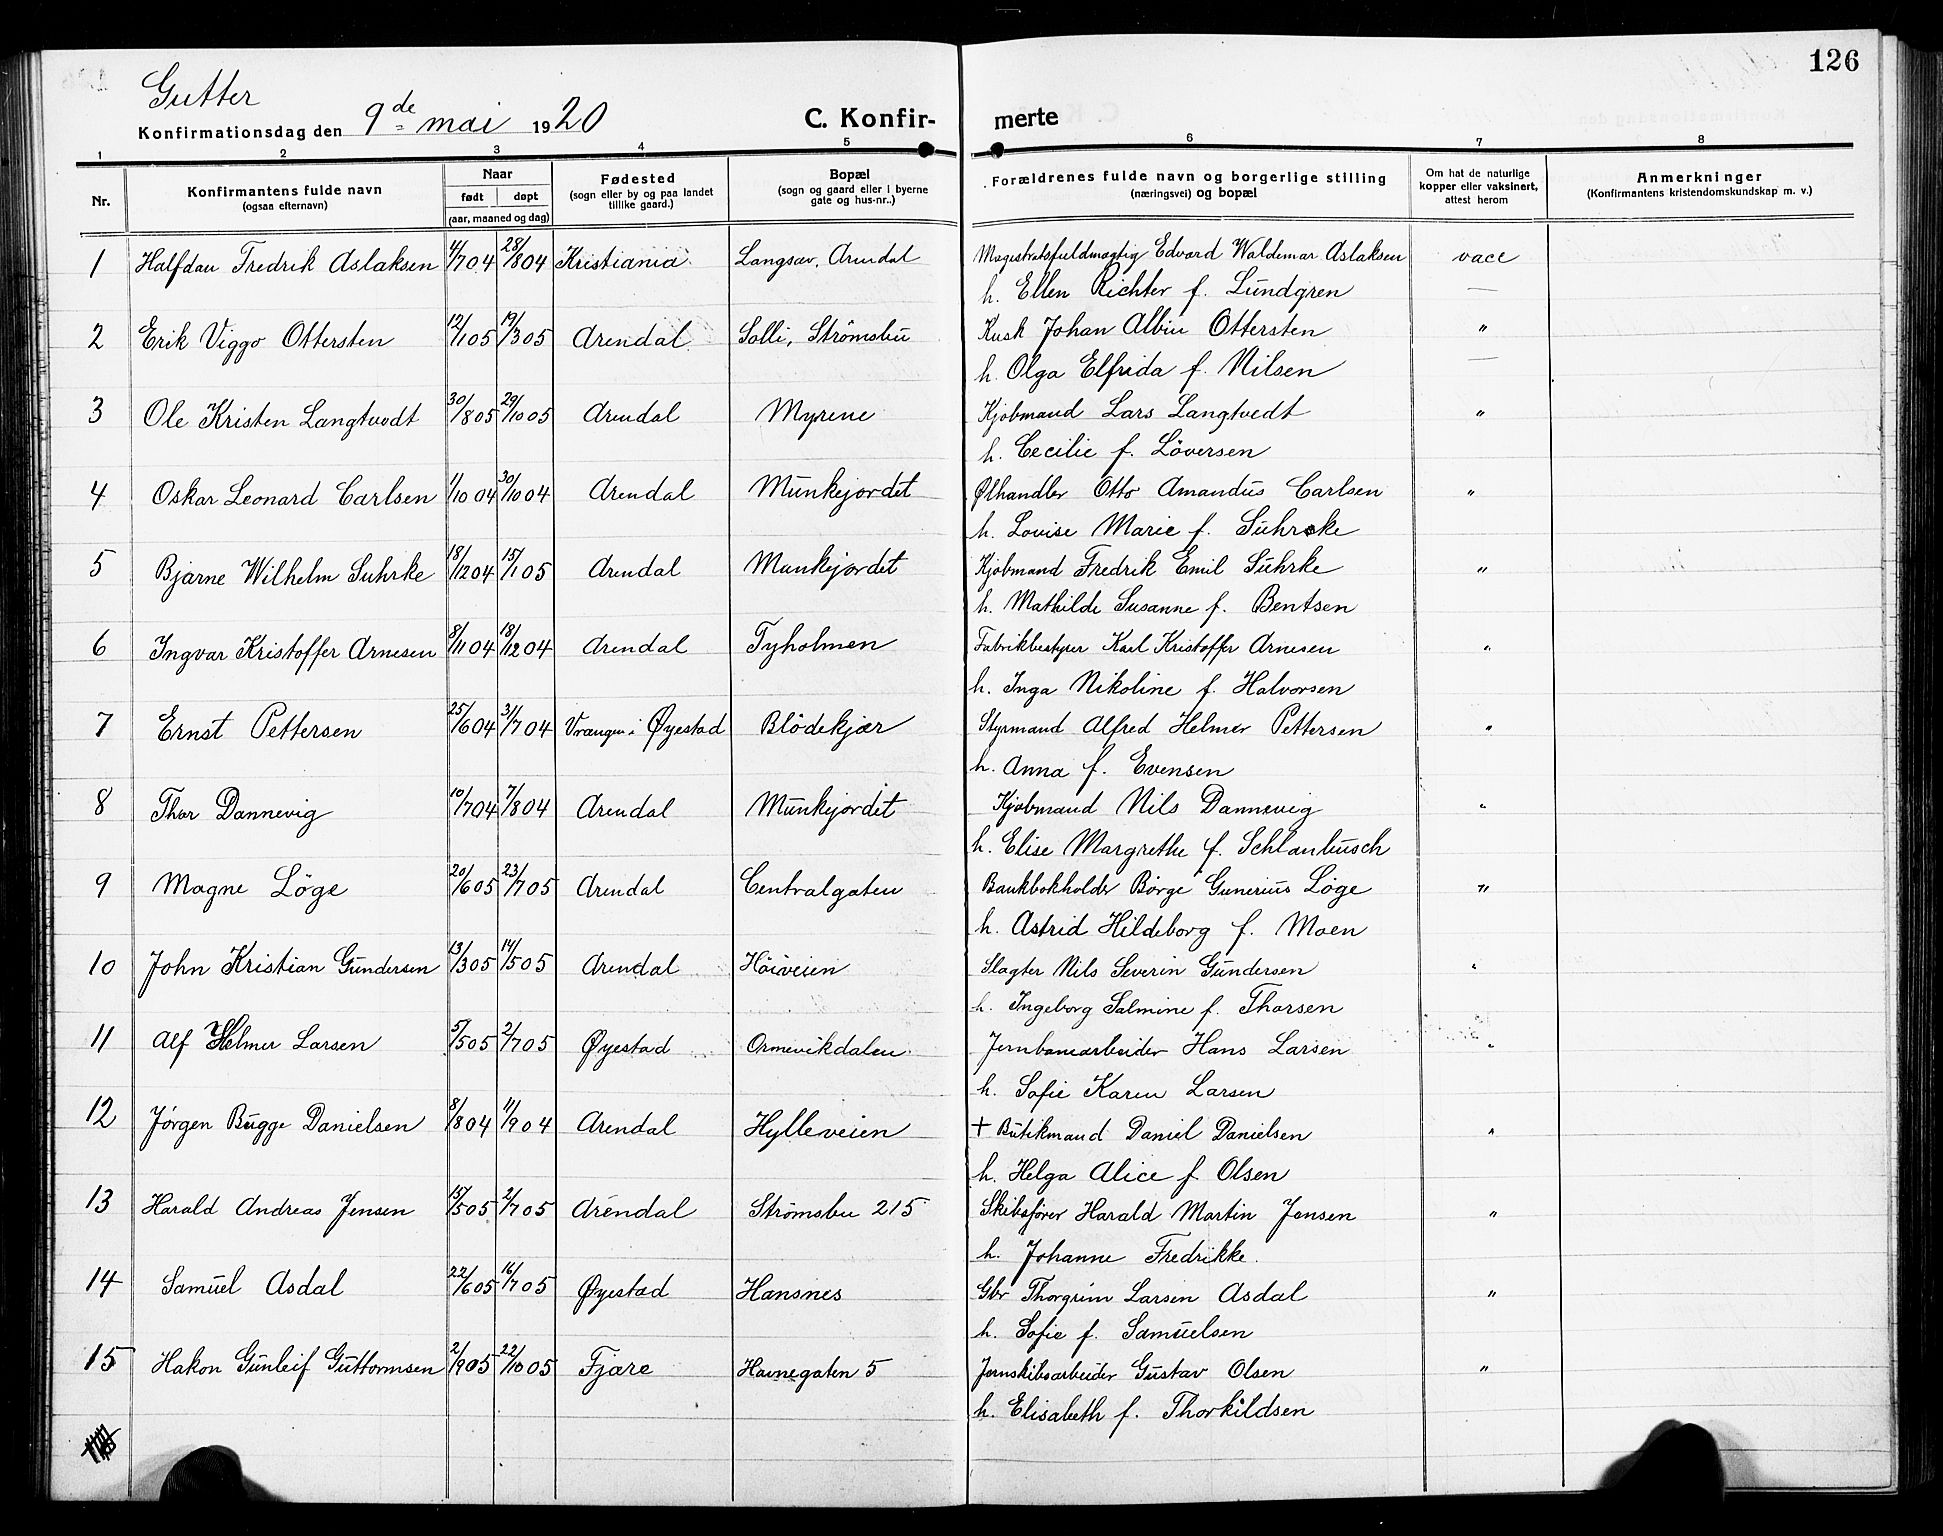 126
Gutter
Konfirmationsdag den 9de mai 1920 C. Konfir- merte
1 2 3 4 5 6 7 8
Nr. Konfirmantens fulde navn (ogsaa efternavn) Naar født døpt (aar, maaned og dag) Fødested (sogn eller by og paa landet tillike gaard.) Bopæl (sogn og gaard eller i byerne gate og hus-nr..) Forældrenes fulde navn og borgerlige stilling (næringsvei) og bopæl Om hat de naturlige kopper eller vaksinert, attest herom Anmerkninger (Konfirmantens kristendomskundskap m. v.)
1 Halfdan Fredrik Aslaksen 4/7 04 28/8 04 Kristiania Langsæv, Arendal Magistratsfuldmægtig Edvard Waldemar Aslaksen vacc
h. Ellen Richter f. Lundgren —
2 Erik Viggo Ottersten 12/1 05 19/3 05 Arendal Solli, Strømsbu Kusk Johan Albin Ottersten "
h. Olga Elfrida f. Nilsen —
3 Ole Kristen Langtvedt 30/8 05 29/10 05 Arendal Myrene Kjøbmand Lars Langtvedt "
h. Cecilie f. Löversen
4 Oskar Leonard Carlsen 1/10 04 30/10 04 Arendal Munkejordet Ølhandler Otto Amandus Carlsen "
h. Lovise Marie f. Suhrke
5 Bjarne Wilhelm Suhrke 18/12 04 15/1 05 Arendal Munkejordet Kjøbmand Fredrik Emil Suhrke "
h. Mathilde Susanne f. Bentsen
6 Ingvar Kristoffer Arnesen 8/11 04 18/12 04 Arendal Tyholmen Fabrikbestyrer Karl Kristoffer Arnesen "
h. Inga Nikoline f. Halvorsen
7 Ernst Pettersen 25/6 04 31/7 04 Vrangen i Øyestad Blödekjær Styrmand Alfred Helmer Pettersen "
h. Anna f. Evensen
8 Thor Dannevig 10/7 04 7/8 04 Arendal Munkejordet Kjøbmand Nils Dannevig "
h. Elise Margrethe f. Schlanbusch
9 Magne Löge 20/6 05 23/7 05 Arendal Centralgaten Bankbokholder Börge Gunerius Löge "
h. Astrid Hildeborg f. Moen
10 John Kristian Gundersen 13/3 05 14/5 05 Arendal Höiveien Slagter Nils Severin Gundersen "
h. Ingeborg Salmine f. Thorsen
11 Alf Helmer Larsen 5/5 05 2/7 05 Øyestad Ormevikdalen Jernbanearbeider Hans Larsen "
h. Sofie Karen Larsen
12 Jørgen Bugge Danielsen 8/8 04 11/9 04 Arendal Hylleveien + Butikmand Daniel Danielsen "
h. Helga Alice f Olsen
13 Harald Andreas Jensen 15/5 05 2/7 05 Arendal Strömsbu 215 Skibsfører Harald Martin Jensen "
h. Johanne Fredrikke.
14 Samuel Asdal 22/6 05 16/7 05 Øyestad Hansnes Gbr Thorgrim Larsen Asdal "
h. Sofie f. Samuelsen
15 Hakon Gunleif Guttormsen 2/9 05 22/10 05 Fjære Havnegaten 5 Jernskibsarbeider Gustav Olsen "
h. Elisabeth f. Thorkildsen